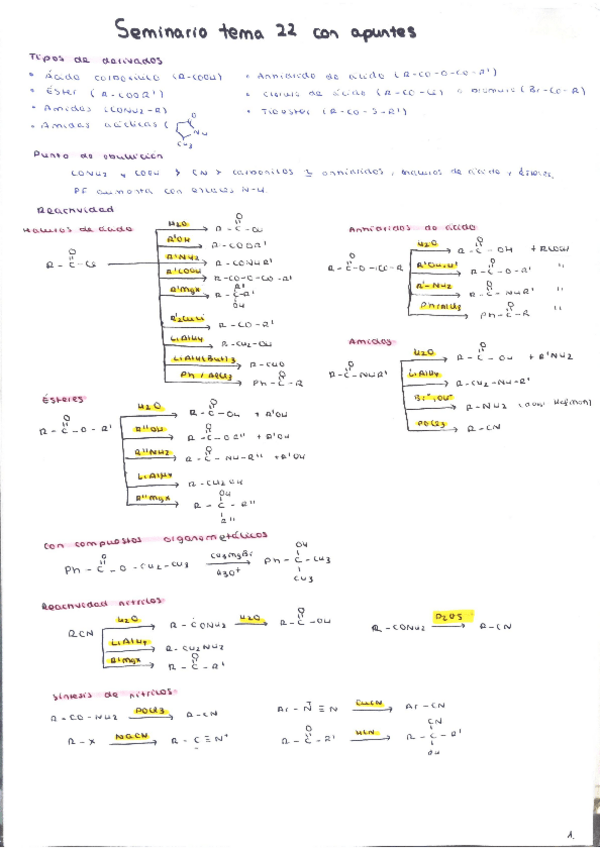 Seminario tema 22 con apuntes
Tipos de derivados
• Ácido carboxílico (R-COOH)
• Anhídrido de ácido (R-CO-O-CO-R')
• Éster (R-COOR')
• Cloruro de ácido (R-CO-Cl) o bromuro (Br-CO-R)
• Amidas (CONH2-R)
• Tioéster (R-CO-S-R')
• Amidas cíclicas (
O
NH
CH3
Punto de ebullición
CONH2 y COOH > CN > carbonilos ≥ anhídridos, haluros de ácido, ésteres
PE aumenta con enlaces N-H.
Reactividad
Haluros de ácido
R-C-Cl
O
H2O R-C-OH
R'OH R-COOR'
R'NH2 R-CONHR'
R'COOH R-CO-O-CO-R'
R'MgX R-C-R'
R'
OH
R'2CuLi R-CO-R'
LiAlH4 R-CH2-OH
LiAlH(OBut)3 R-CHO
Ph / AlCl3 Ph-C-R
Anhídridos de ácido
R-C-O-CO-R
H2O R-C-OH + RCOOH
R'OH, H+ R-C-O-R' "
R'-NH2 R-C-NHR' "
Ph/AlCl3 Ph-C-R "
Amidas
R-C-NHR'
H2O R-C-OH + R'NH2
LiAlH4 R-CH2-NH-R'
Br2, OH- R-NH2
POCl3 R-CN
Ésteres
R-C-O-R'
H2O R-C-OH + R'OH
R''OH R-C-OR'' + R'OH
R''NH2 R-C-NH-R'' + R'OH
LiAlH4 R-CH2OH
R''MgX R-C-R''
OH
R''
Con compuestos organometálicos
Ph-C-O-CH2-CH3
CH3MgBr
H3O+
Ph-C-CH3
OH
CH3
Reactividad nitrilos
RCN
H2O R-CONH2 H2O R-C-OH
R-CONH2 P2O5 R-CN
LiAlH4 R-CH2NH2
R'MgX R-C-R'
Síntesis de nitrilos
R-CO-NH2 POCl3 R-CN
Ar-N≡N CuCN Ar-CN
R-X NaCN R-C≡N
R-C-R' HCN R-C-R'
CN
OH
1.